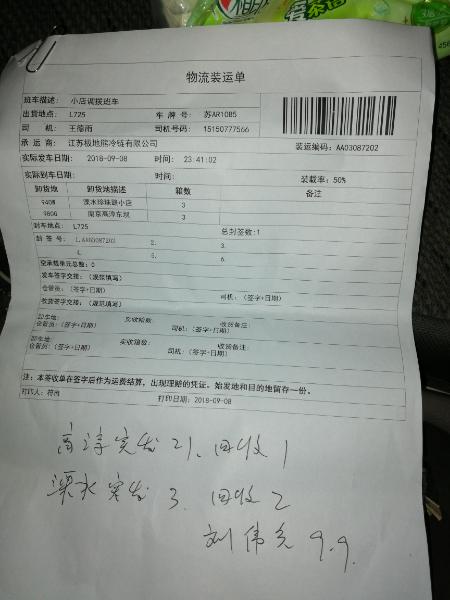 物流装运单
班车描述: 小店调拨班车
出货地点: L725 车 牌 号: 苏AR1085
司 机: 王德雨 司机号码: 15150777566
承 运 商: 江苏极地熊冷链有限公司 装运编码: AA03087202
实际发车日期: 2018-09-08 时间: 23:41:02
实际到车日期: 时间: 装载率: 50%
卸货地 卸货地描述 箱数 备注
940W 溧水珍珠路小店 3
980G 南京高淳东坝 3
封车地点: L725 总封签数:1
封 签 号: 1.AA03087202 2. 3.
4. 5. 6.
空承载单元总数: 0
发车签字交接: (规范填写)
仓管员: (签字+日期) 司机: (签字+日期)
收货签字交接: (规范填写)
卸车地: 实收箱数: 收货备注:
仓管员: (签字+日期) 司机: (签字+日期)
卸车地: 实收箱数: 收货备注:
仓管员: (签字+日期) 司机: (签字+日期)
注: 本签收单在签字后作为运费结算, 出现理赔的凭证。始发地和目的地留存一份。
打印人: 符尚 打印日期: 2018-09-08
高淳实发21、回收1
溧水实发3、回收2
刘伟 9.9.